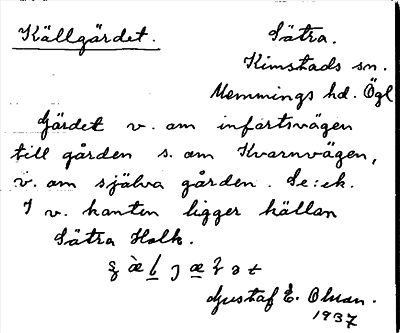 Källgärdet.
Sätra.
Kimstads sn.
Memmings hd. Ögl
Gärdet v. om infartsvägen
till gården s. om Kvarnvägen,
v. om själva gården. Se: ek.
I v. kanten ligger källan
Sätra Holk.
Gustaf E. Olsson.
1937